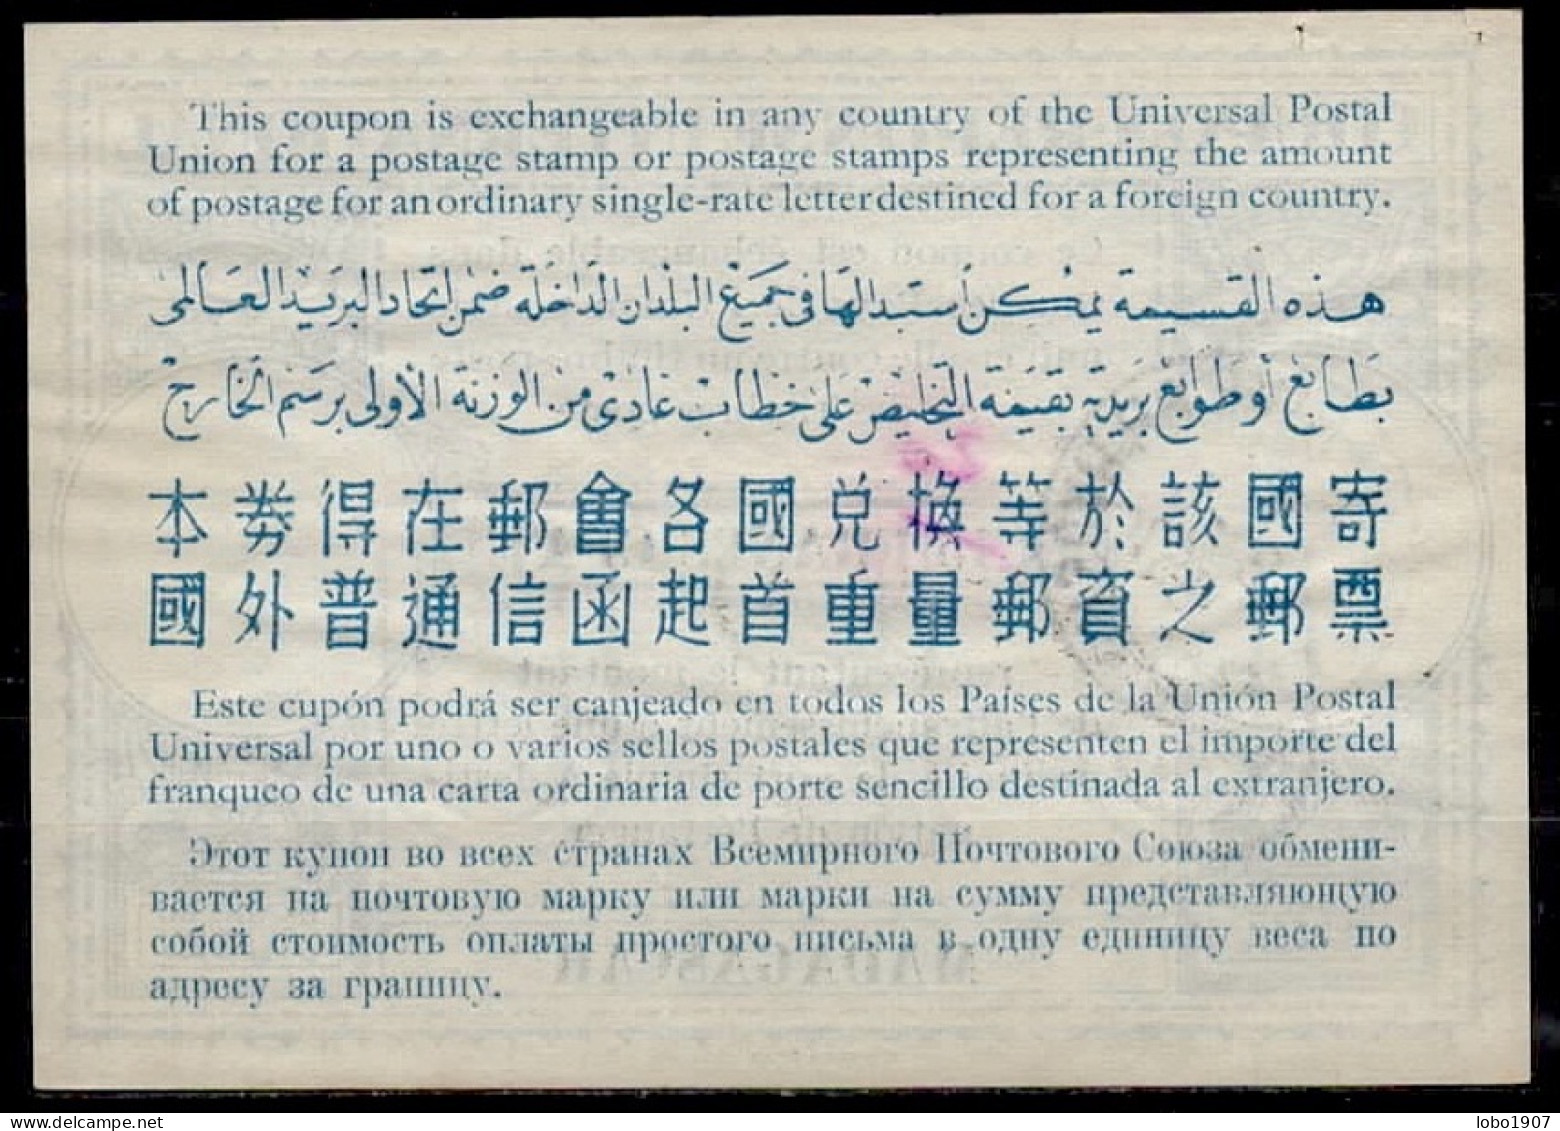 This coupon is exchangeable in any country of the Universal Postal
Union for a postage stamp or postage stamps representing the amount
of postage for an ordinary single-rate letter destined for a foreign country.
هذه القسيمة يمكن أستبدالها في جميع البلدان الداخلة ضمن اتحاد البريد العالمى
بطابع أو طوابع بريدية بقيمة التخليص على خطابات عادى من الوزنة الأولى برسم الخارج
本劵得在郵會各國兌換等於該國寄
國外普通信函起首重量郵資之郵票
Este cupón podrá ser canjeado en todos los Países de la Unión Postal
Universal por uno o varios sellos postales que representen el importe del
franqueo de una carta ordinaria de porte sencillo destinada al extranjero.
Этот купон во всех странах Всемирного Почтового Союза обмени-
вается на почтовую марку или марки на сумму представляющую
собой стоимость оплаты простого письма в одну единицу веса по
адресу за границу.
MADAGASCAR
lobo1907